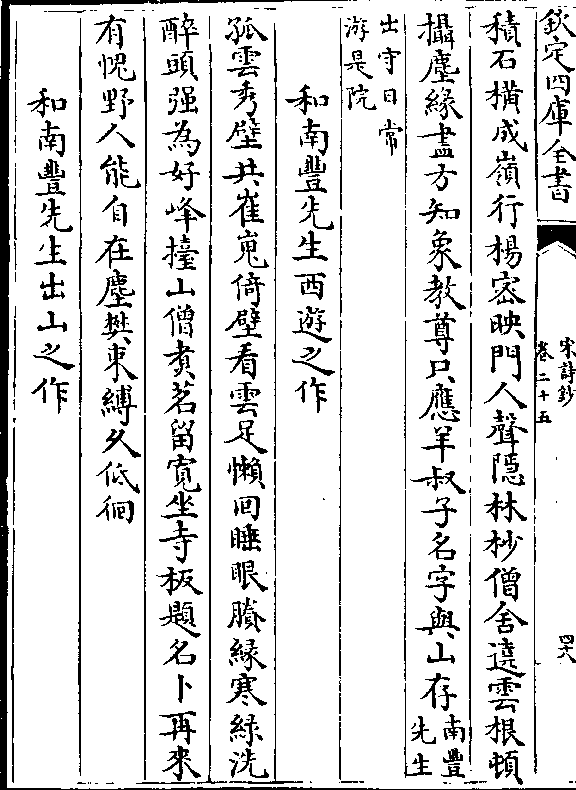 欽定四庫全書
宋詩鈔
卷二十五
四六
積石橫成嶺行楊密映門人聲隱林杪僧舍遶雲根頓
攝塵緣盡方知象教尊只應羊叔子名字與山存南豐先生
出守日常游是院
和南豐先生西遊之作
孤雲秀壁共崔嵬倚壁看雲足懶回睡眼賸緣寒綠洗
醉頭强為好峰擡山僧煑茗留寛坐寺板題名卜再來
有愧野人能自在塵樊束縛久低徊
和南豐先生出山之作